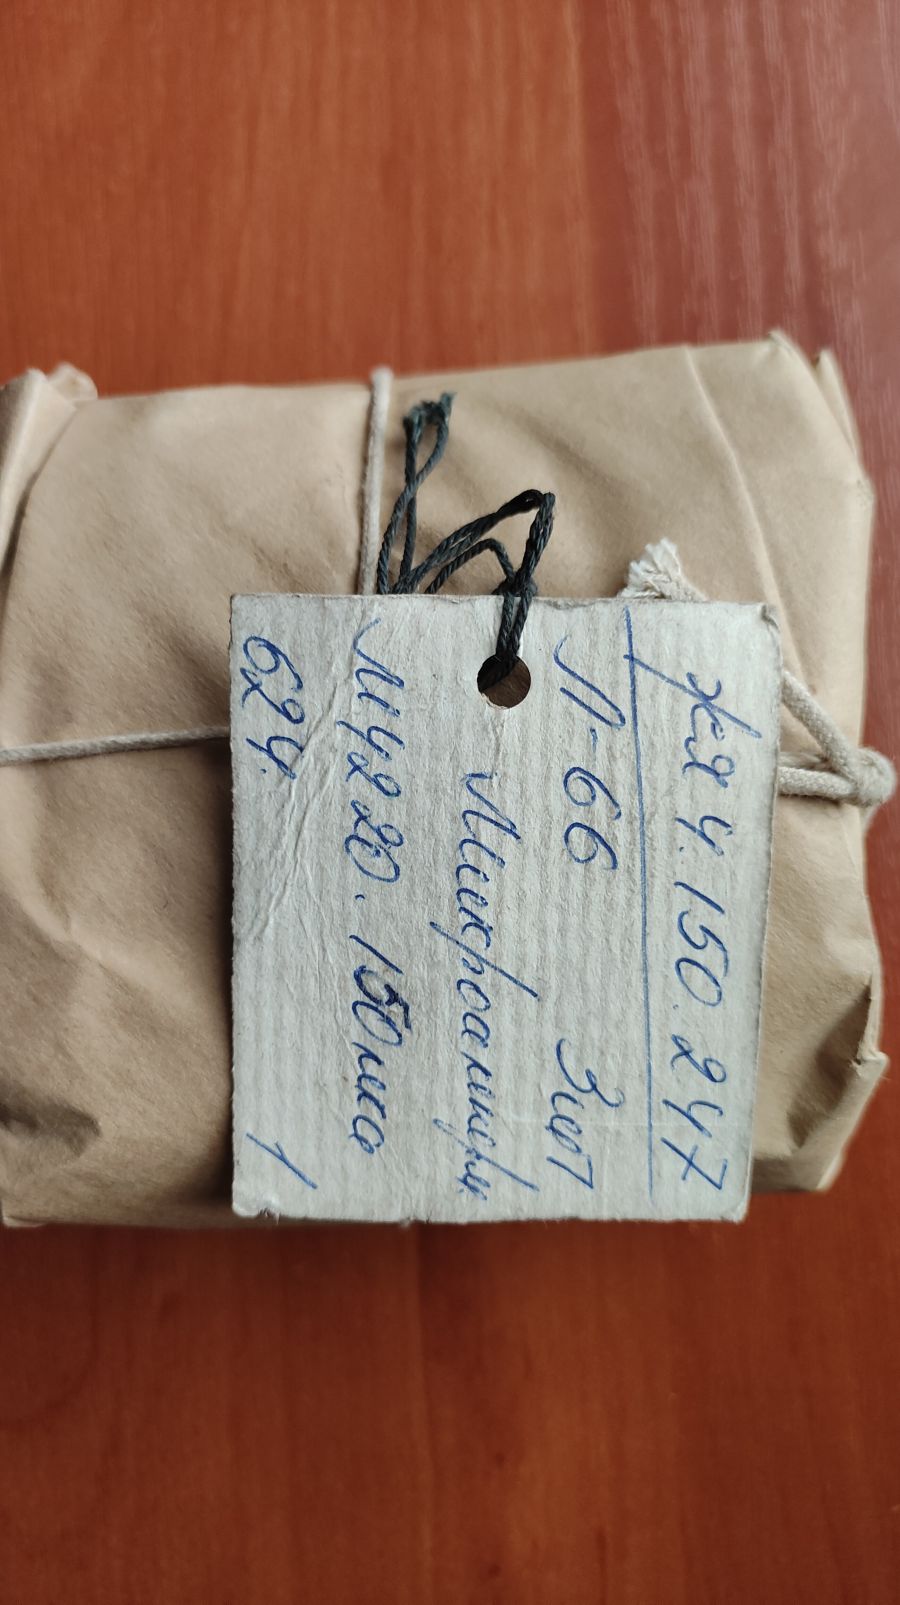 Жд 4.150.247
Л-66 ЗиП
Микроамперм.
М4220. 150мка
624. 1